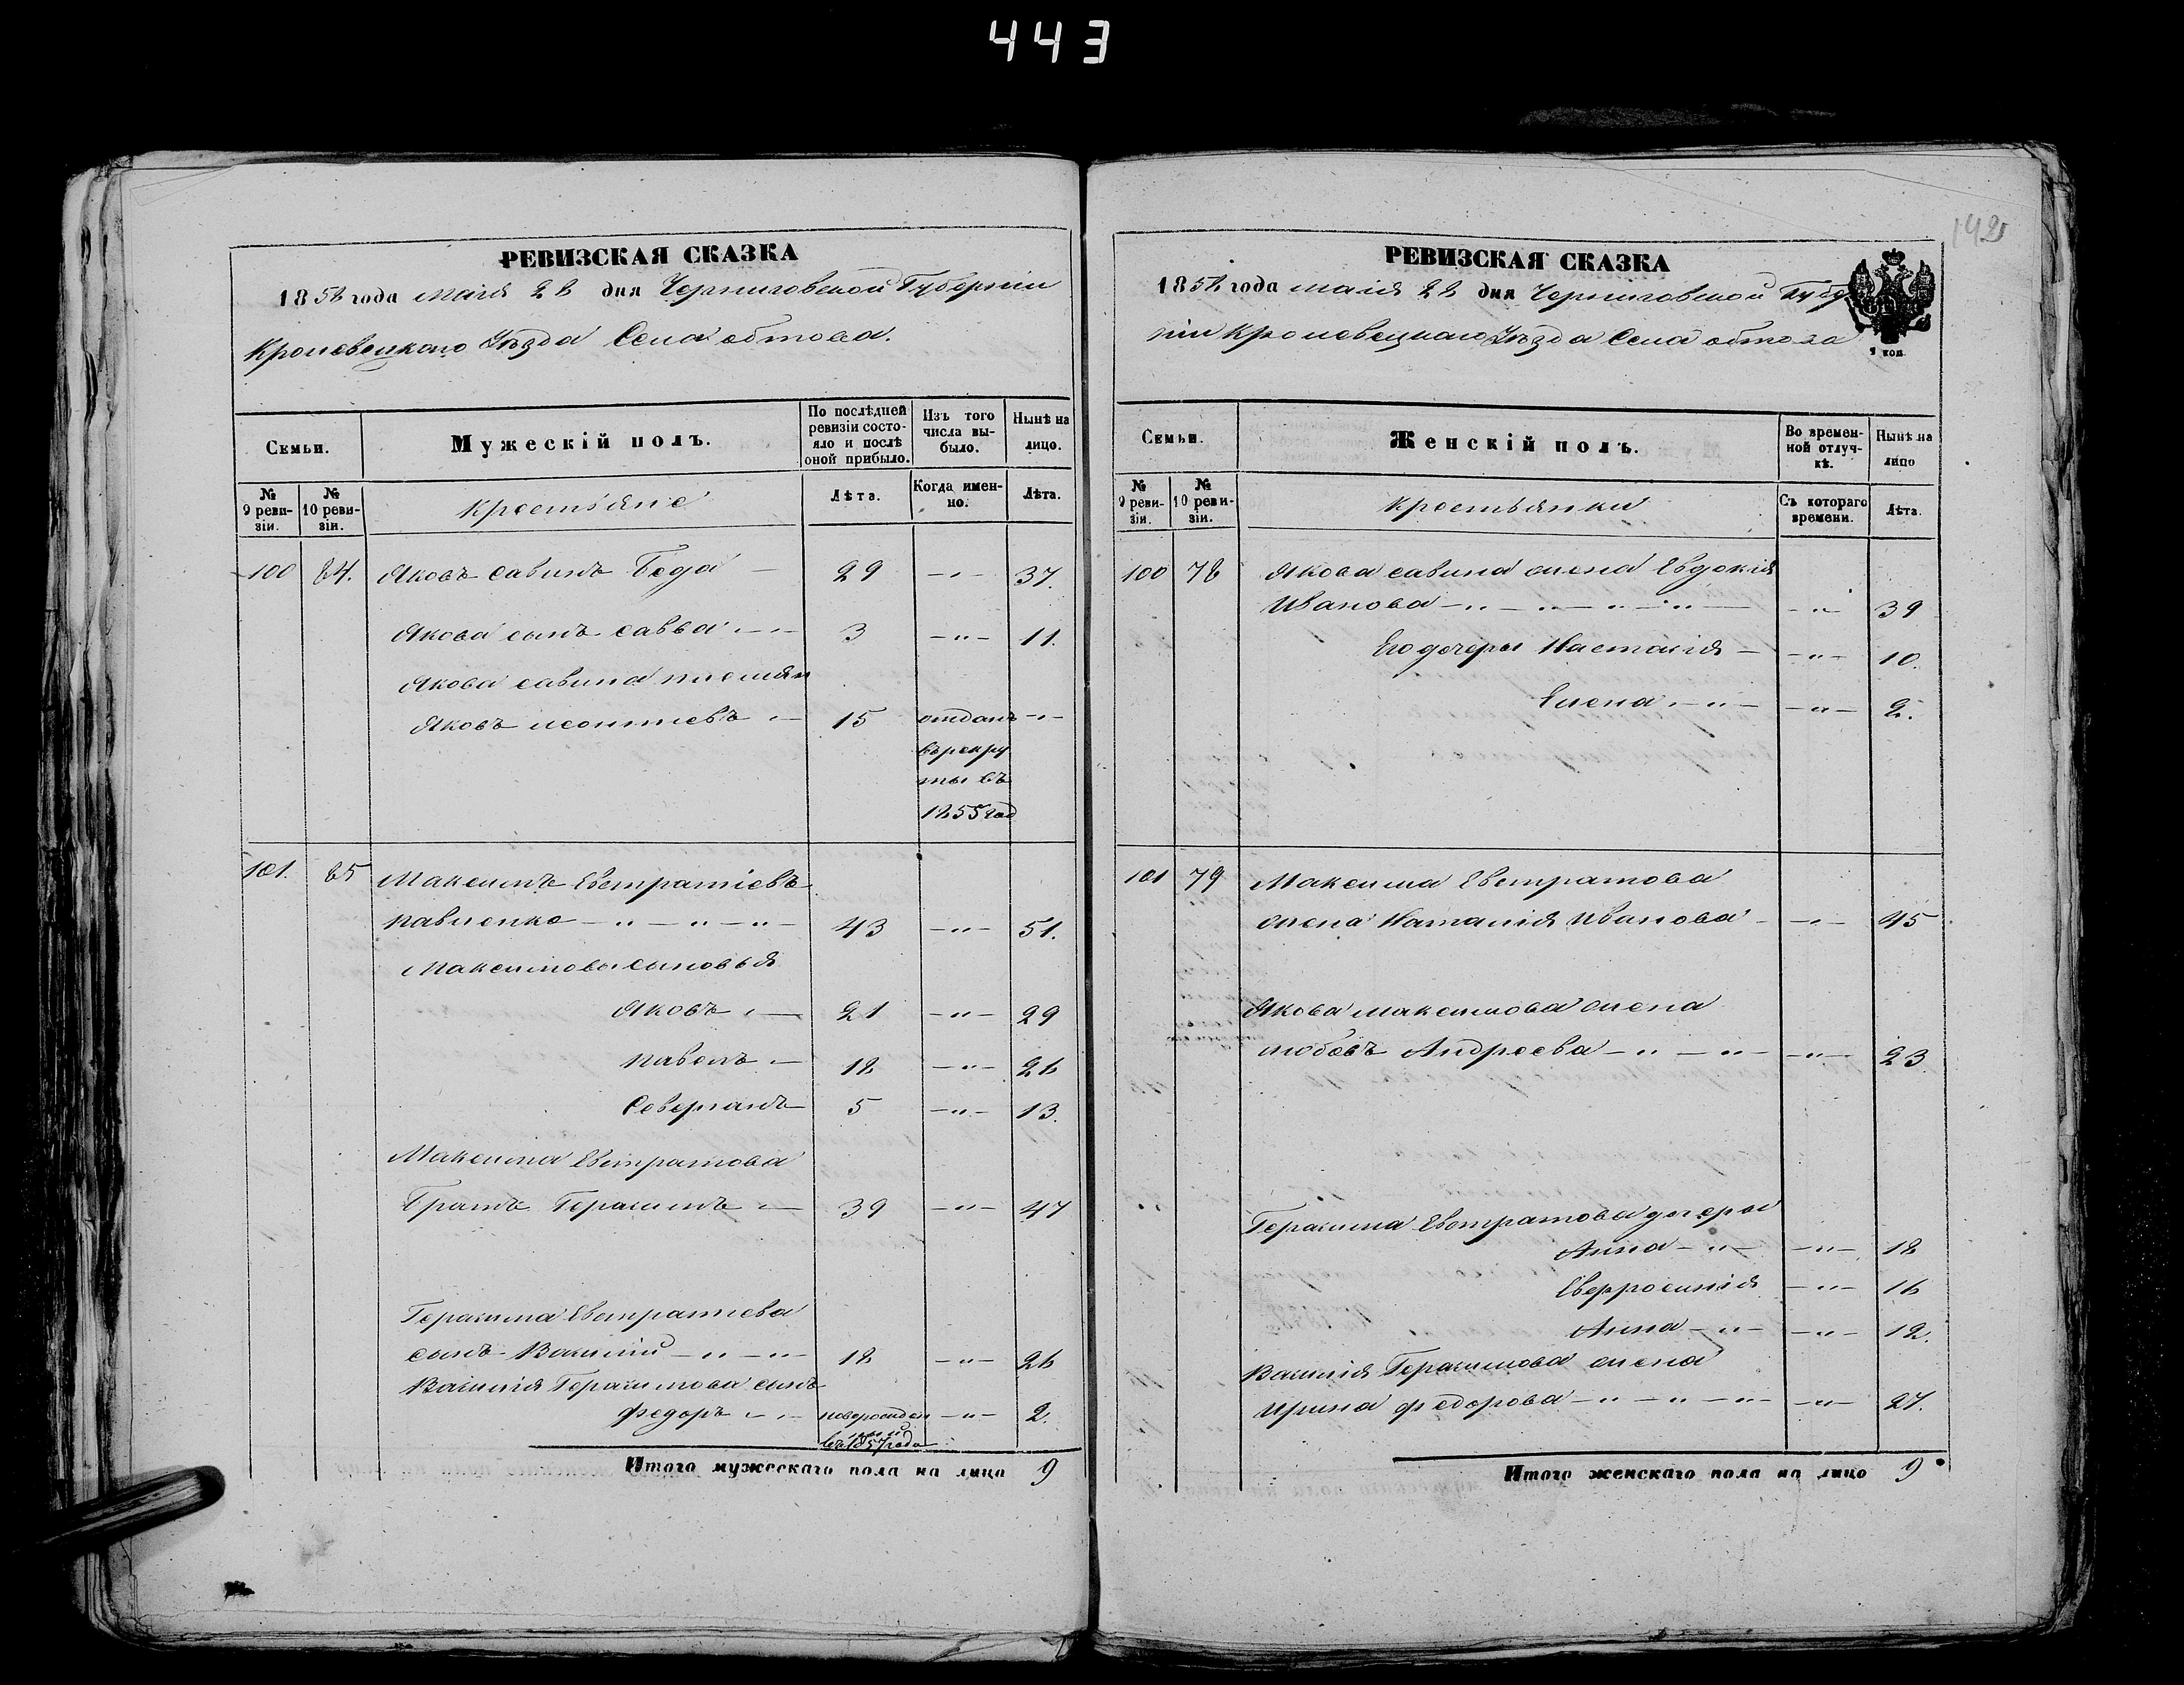 443
142
РЕВИЗСКАЯ СКАЗКА
1858 года маія 28 дня Черниговской Губерніи
Кролевецкаго Уѣзда Села обтова.
Семьи.
Мужескій полъ.
По послѣдней ревизіи состояло и послѣ оной прибыло.
Изъ того числа выбыло.
Нынѣ на лицо.
№ 9 ревизіи.
№ 10 ревизіи.
крестьяне
Лѣта.
Когда именно.
Лѣта.
100 84. Яковъ савинъ Беда — 29 — " — 37.
Якова сынъ савва — " — 3 — " — 11.
Якова савина племян
Яковъ леонтиевъ — 15 отданъ — " —
въ рекру
ты въ
1855 год
101. 85 Максимъ Евстратіевъ
павленко — " — " — " — 43 — " — 51.
Максимовы сыновья
Яковъ — 21 — " — 29
павелъ — 18 — " — 26
Северіанъ — 5 — " — 13.
Максима Евстратова
братъ Герасимъ — 39 — " — 47
Герасима Евстратиева
сынъ Василій — " — " — 18 — " — 26
Василія Герасимова сынъ
федоръ — " — новорожден — " — 2.
въ 1857 года
Итого мужескаго пола на лицо 9
РЕВИЗСКАЯ СКАЗКА
1858 года маія 28 дня Черниговской Губер
ніи Кролевецкаго Уѣзда Села обтова
2 коп
Семьи.
Женскій полъ.
Во временной отлучкѣ.
Нынѣ на лицо
№ 9 ревизіи.
№ 10 ревизіи.
крестьянки
Съ котораго времени.
Лѣта.
100 78 Якова савина жена Евдокія
Иванова — " — " — " — " — — " — 39
Его дочеры Настасія — — " — 10.
Елена — " — — " — 2.
101 79 Максима Евстратова
жена Наталія Иванова — — " — 45
Якова максимова жена
любовъ Андреева — " — " — — " — 23
Герасима Евстратова дочеры
Анна — " — — " — 18
Евфросинія — " — 16
Анна — " — — " — 12.
Василія Герасимова жена
Ирина федорова — " — " — " — — " — 27.
Итого женскаго пола на лицо 9